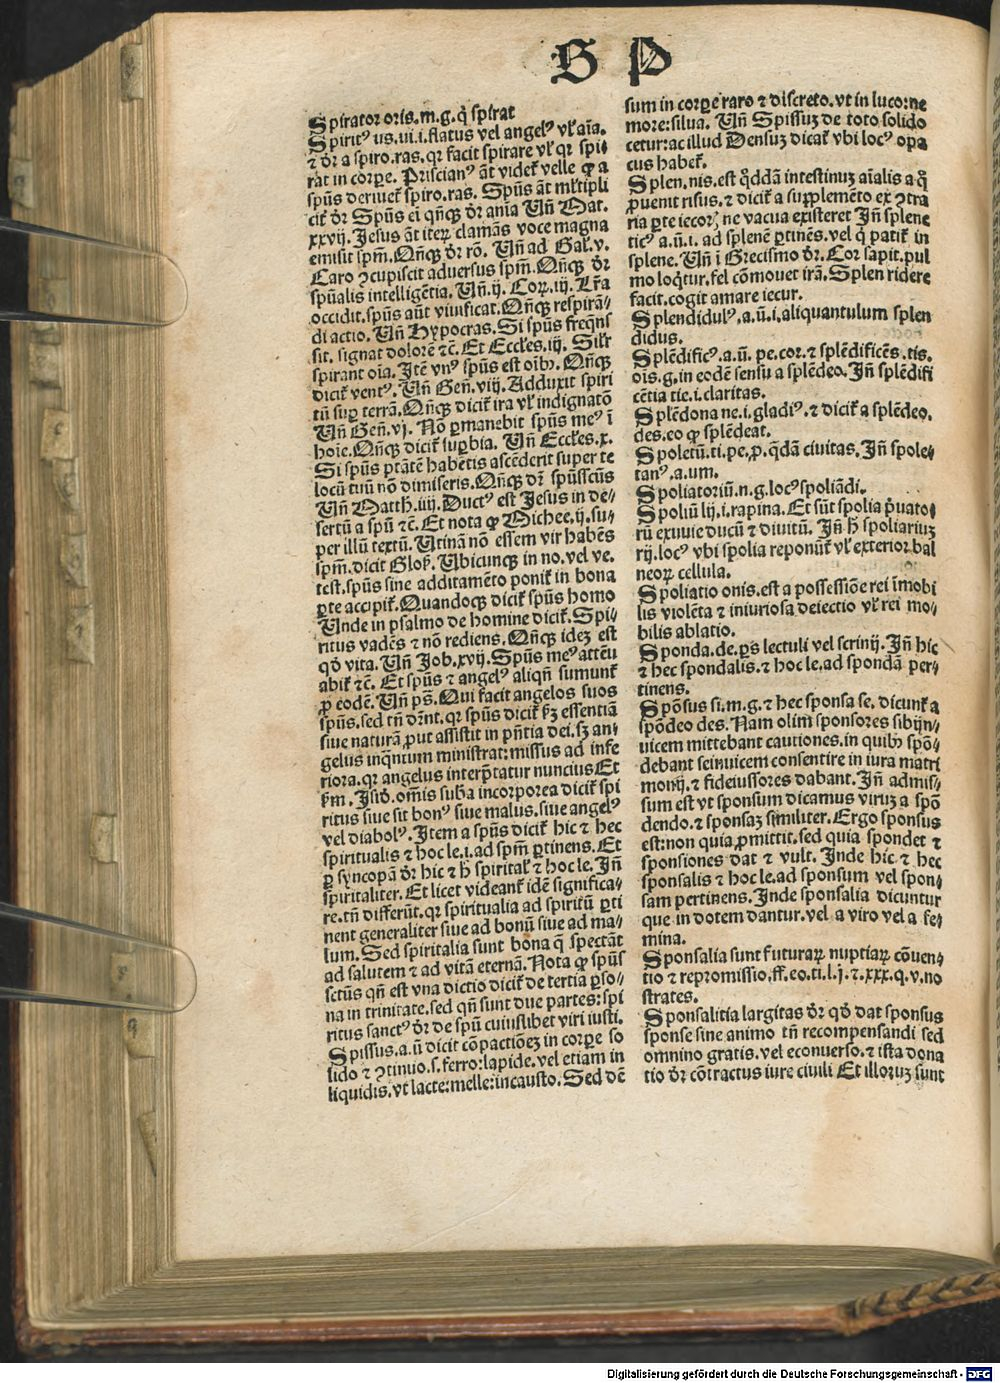 S P
Spirator oris.m.g.q̇ spirat
Spiritꝰ us.ui.i.flatus vel angelꝰ vl̓ aĩa.
⁊ dr̄ a spiro.ras.qr facit spirare vl̓ qr spi-
rat in corꝑe. Priscianꝰ ãt videt̃ velle ꝙ a
spũs deriuet̃ spiro.ras. Spũs ãt ml̓tipli
cit̃ dr̄ Spũs ei qñqꝫ dr̄ ania Uñ Mat.
xxvij. Jesus ãt iteꝝ clamãs voce magna
emisit spm̃. Qñqꝫ dr̄ rõ. Uñ ad Gal̓.v.
Caro ꝯcupiscit adversus spm̃. Qñqꝫ dr̄
spũalis intelligẽtia. Uñ.ij. Coꝝ.iij. Lr̃a
occidit.spũs aũt viuificat. Qñqꝫ respirã-
di actio. Uñ Hypocras. Si spũs freq̃ns
sit. signat dolorẽ ⁊c̃. Et Eccles.iij. Sil̓r
spirant oĩa. Jtẽ vnꝰ spũs est oĩbꝫ. Qñqꝫ
dicit̃ ventꝰ. Uñ Geñ.viij. Adduxit spiri
tũ suꝑ terrã. Qñqꝫ dicit̃ ira vl̓ indignatõ
Uñ Geñ.vj. Nõ ꝑmanebit spũs meꝰ ĩ
hoĩe. Qñqꝫ dicit̃ suꝑbia. Uñ Eccles.x.
Si spũs ptãtẽ habẽtis ascẽderit super te
locũ tuũ nõ dimiseris. Qñqꝫ dr̄ spũsscũs
Uñ Matth.iiij. Ductꝰ est Jesus in de-
sertũ a spũ ⁊c̃. Et nota ꝙ Michee.ij.su-
per illũ textũ. Utinã nõ essem vir habẽs
spm̃. dicit Glos̃. Ubicunqꝫ in no. vel ve.
test.spũs sine additamẽto ponit̃ in bona
ꝑte accipit̃. Quandoqꝫ dicit̃ spũs homo
Unde in psalmo de homine dicit̃. Spi-
ritus vadẽs ⁊ nõ rediens. Qñqꝫ ideꝫ est
qd̓ vita. Uñ Job.xvij. Spũs meꝰ attẽu
abit̃ ⁊c̃. Et spũs ⁊ angelꝰ aliqñ sumunt̃
ꝓ eodẽ. Uñ ps̃. Qui facit angelos suos
spũs.sed tñ dr̃nt.qr spũs dicit̃ ẜm essentiã
siue naturã ꝓut assistit in pñtia dei.sꝫ an-
gelus inq̃ntum ministrat:missus ad infe
riora.qr angelus interp̃tatur nuncius Et
ẜm. Jsid̓. om̃is sub̃a incorporea dicit̃ spi
ritus siue sit bonꝰ siue malus.siue angelꝰ
vel diabolꝰ. Jtem a spũs dicit̃ hic ⁊ hec
spiritualis ⁊ hoc le.i.ad spm̃ ꝑtinens. Et
ꝑ syncopã dr̄ hic ⁊ h̓ spirital̓ ⁊ hoc le. Jñ
spiritaliter. Et licet videant̃ idẽ significa-
re.tñ differũt.qr spiritualia ad spiritũ ꝑti
nent generaliter siue ad bonũ siue ad ma-
lum. Sed spiritalia sunt bona q̃ spectãt
ad salutem ⁊ ad vitã eternã. Nota ꝙ spũs
sctũs qñ est vna dictio dicit̃ de tertia ꝑso-
na in trinitate.sed qñ sunt due partes:spi
ritus sanctꝰ dr̄ de spũ cuiuslibet viri iusti.
Spissus.a.ũ dicit cõpactiõeꝫ in corꝑe so
lido ⁊ ꝯtinuo.s.ferro:lapide.vel etiam in
liquidis.vt lacte:melle:incausto. Sed dẽ
sum in corꝑe raro ⁊ discreto.vt in luco:ne
more:silua. Uñ Spissuꝫ de toto solido
cetur:ac illud Densuꝫ dicat̃ vbi locꝰ opa
cus habet̃.
Splen.nis.est qd̓dã intestinuꝫ aĩalis a.q̊
ꝓuenit risus.⁊ dicit̃ a supplemẽto ex ꝯtra
ria ꝑte iecorꝭ ne vacua existeret Jñ splene
ticꝰ a.ũ.i. ad splenẽ ꝑtinẽs.vel q̇ patit̃ in
splene. Uñ ĩ Grecismo dr̄. Cor sapit.pul
mo loq̃tur.fel cõmouet irã. Splen ridere
facit.cogit amare iecur.
Splendidulꝰ.a.ũ.i.aliquantulum splen
didus.
Splẽdificꝰ.a.ũ. pe.cor.⁊ splẽdificẽs.tis.
oĩs.g.in eodẽ sensu a splẽdeo. Jñ splẽdifi
cẽtia tie.i.claritas.
Splẽdona ne.i.gladiꝰ.⁊ dicit̃ a splẽdeo.
des.eo ꝙ splẽdeat.
Spoletũ.ti.pe.ꝓ.q̃dã civitas. Jñ spole-
tanꝰ.a.um.
Spoliatoriũ.n.g.locꝰ spoliãdi.
Spoliũ lij.i.rapina. Et sũt spolia p̓uato-
rũ exuuie ducũ ⁊ diuitũ. Jñ h̓ spoliariuꝫ
rij.locꝰ vbi spolia reponũt̃ vl̓ exterior bal
neoꝝ cellula.
Spoliatio onis.est a possessiõe rei ĩmobi
lis violẽta ⁊ iniuriosa deiectio vl̓ rei mo-
bilis ablatio.
Sponda.de.ꝑs lectuli vel scrinij. Jñ hic
⁊ hec spondalis.⁊ hoc le.ad spondã per-
tinens.
Spõsus si.m.g.⁊ hec sponsa se. dicunt̃ a
spõdeo des. Nam olim sponsores sibijn-
uicem mittebant cautiones.in quibꝫ spõ-
debant seinuicem consentire in iura matri
monij.⁊ fideiussores dabant. Jñ admis-
sum est vt sponsum dicamus viruꝫ a spõ
dendo.⁊ sponsaꝫ similiter. Ergo sponsus
est:non quia ꝓmittit.sed quia spondet ⁊
sponsiones dat ⁊ vult. Jnde hic ⁊ hec
sponsalis ⁊ hoc le.ad sponsum vel spon-
sam pertinens. Jnde sponsalia dicuntur
que in dotem dantur.vel a viro vel a fe-
mina.
Sponsalia sunt futuraꝝ nuptiaꝝ cõuen-
tio ⁊ repromissio.ff.eo.ti.l.j.⁊.xxx.q.v.no
strates.
Sponsalitia largitas dr̄ qd̓ dat sponsus
sponse sine animo tñ recompensandi sed
omnino gratis.vel econuerso.⁊ ista dona
tio dr̄ cõtractus iure ciuili Et illoruꝫ sunt
Digitalisierung gefördert durch die Deutsche Forschungsgemeinschaft - DFG